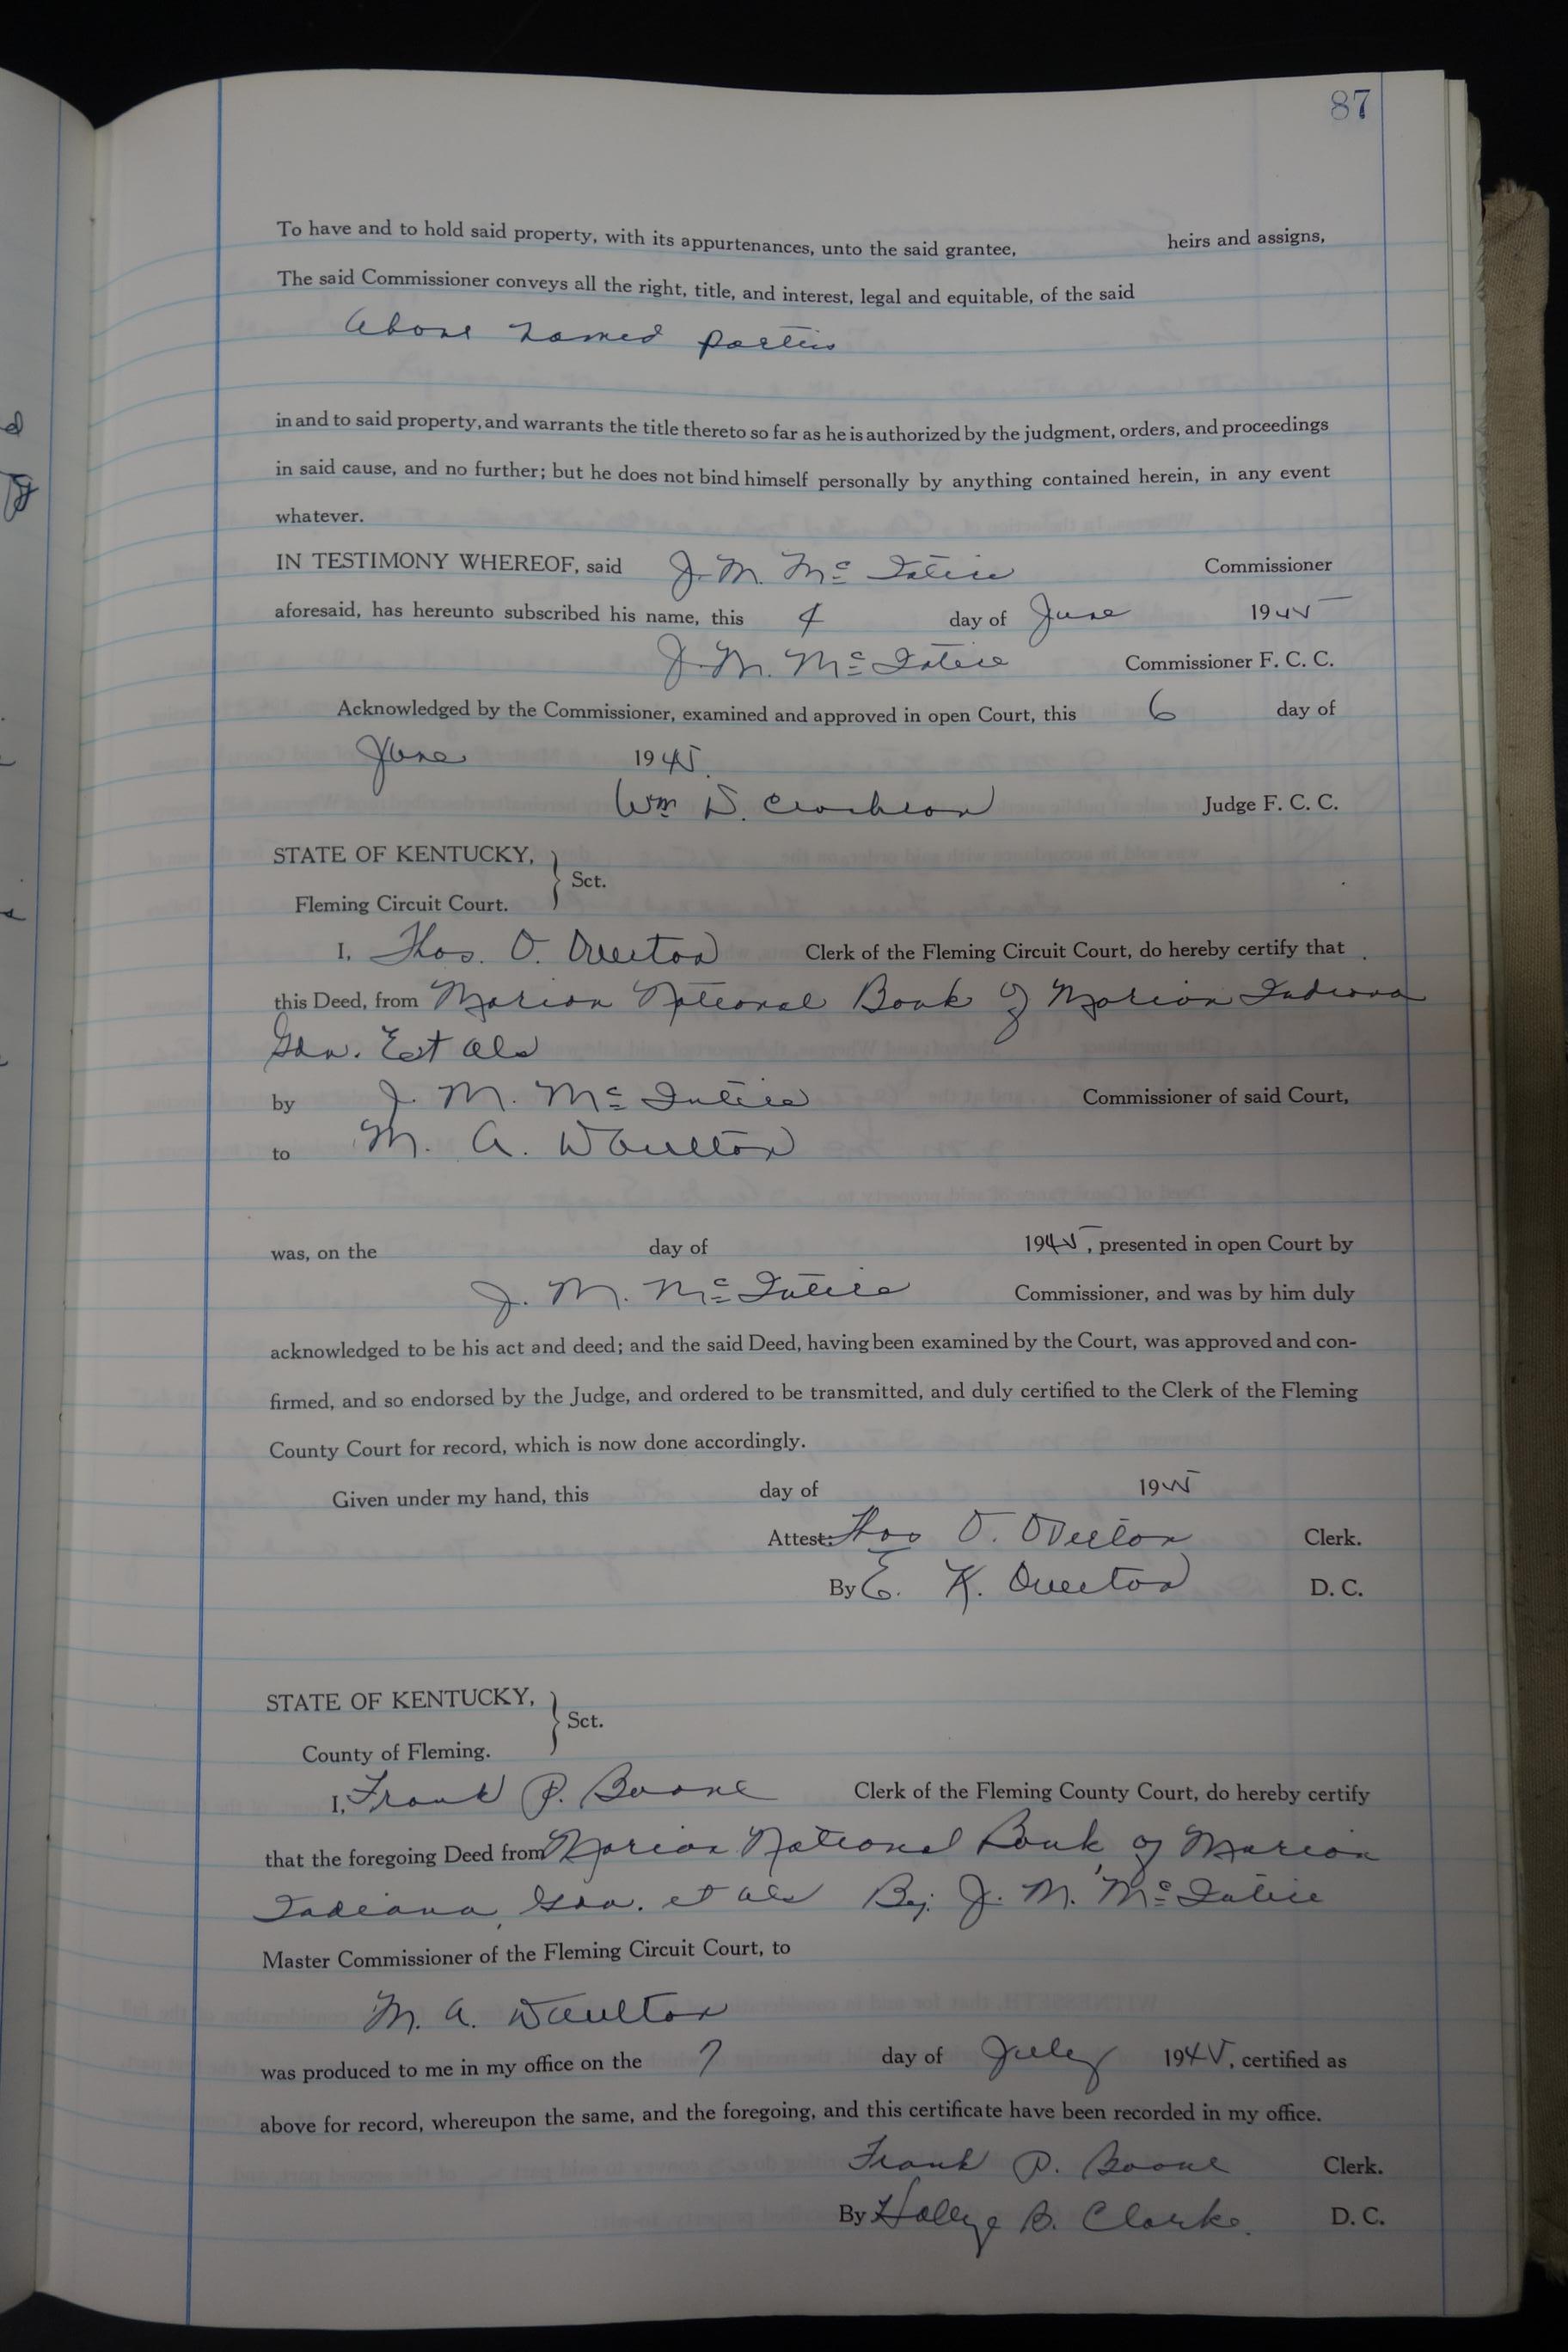 87
To have and to hold said property, with its appurtenances, unto the said grantee, heirs and assigns,
The said Commissioner conveys all the right, title, and interest, legal and equitable, of the said
above named parties
in and to said property, and warrants the title thereto so far as he is authorized by the judgment, orders, and proceedings
in said cause, and no further; but he does not bind himself personally by anything contained herein, in any event
whatever.
IN TESTIMONY WHEREOF, said J. M. Mc Intire Commissioner
aforesaid, has hereunto subscribed his name, this 4 day of June 1945
J. M. Mc Intire Commissioner F. C. C.
Acknowledged by the Commissioner, examined and approved in open Court, this 6 day of
June 1945.
Wm D. Judge F. C. C.
STATE OF KENTUCKY,
Sct.
Fleming Circuit Court.
I, Thos. O. Overton Clerk of the Fleming Circuit Court, do hereby certify that
this Deed, from Marion National Bank of Marion Indiana
Gdn. Et als
by J. M. Mc Intire Commissioner of said Court,
to M. A. Waulton
was, on the day of 1945, presented in open Court by
J. M. Mc Intire Commissioner, and was by him duly
acknowledged to be his act and deed; and the said Deed, having been examined by the Court, was approved and con-
firmed, and so endorsed by the Judge, and ordered to be transmitted, and duly certified to the Clerk of the Fleming
County Court for record, which is now done accordingly.
Given under my hand, this day of 1945
Attest: Thos O. Overton Clerk.
By E. K. Overton D. C.
STATE OF KENTUCKY,
Sct.
County of Fleming.
I, Frank P. Boone Clerk of the Fleming County Court, do hereby certify
that the foregoing Deed from Marion National Bank of Marion
Indiana, Gdn. et als By. J. M. Mc Intire
Master Commissioner of the Fleming Circuit Court, to
M. A. Waulton
was produced to me in my office on the 7 day of July 1945, certified as
above for record, whereupon the same, and the foregoing, and this certificate have been recorded in my office.
Frank P. Boone Clerk.
By B. Clarke. D. C.